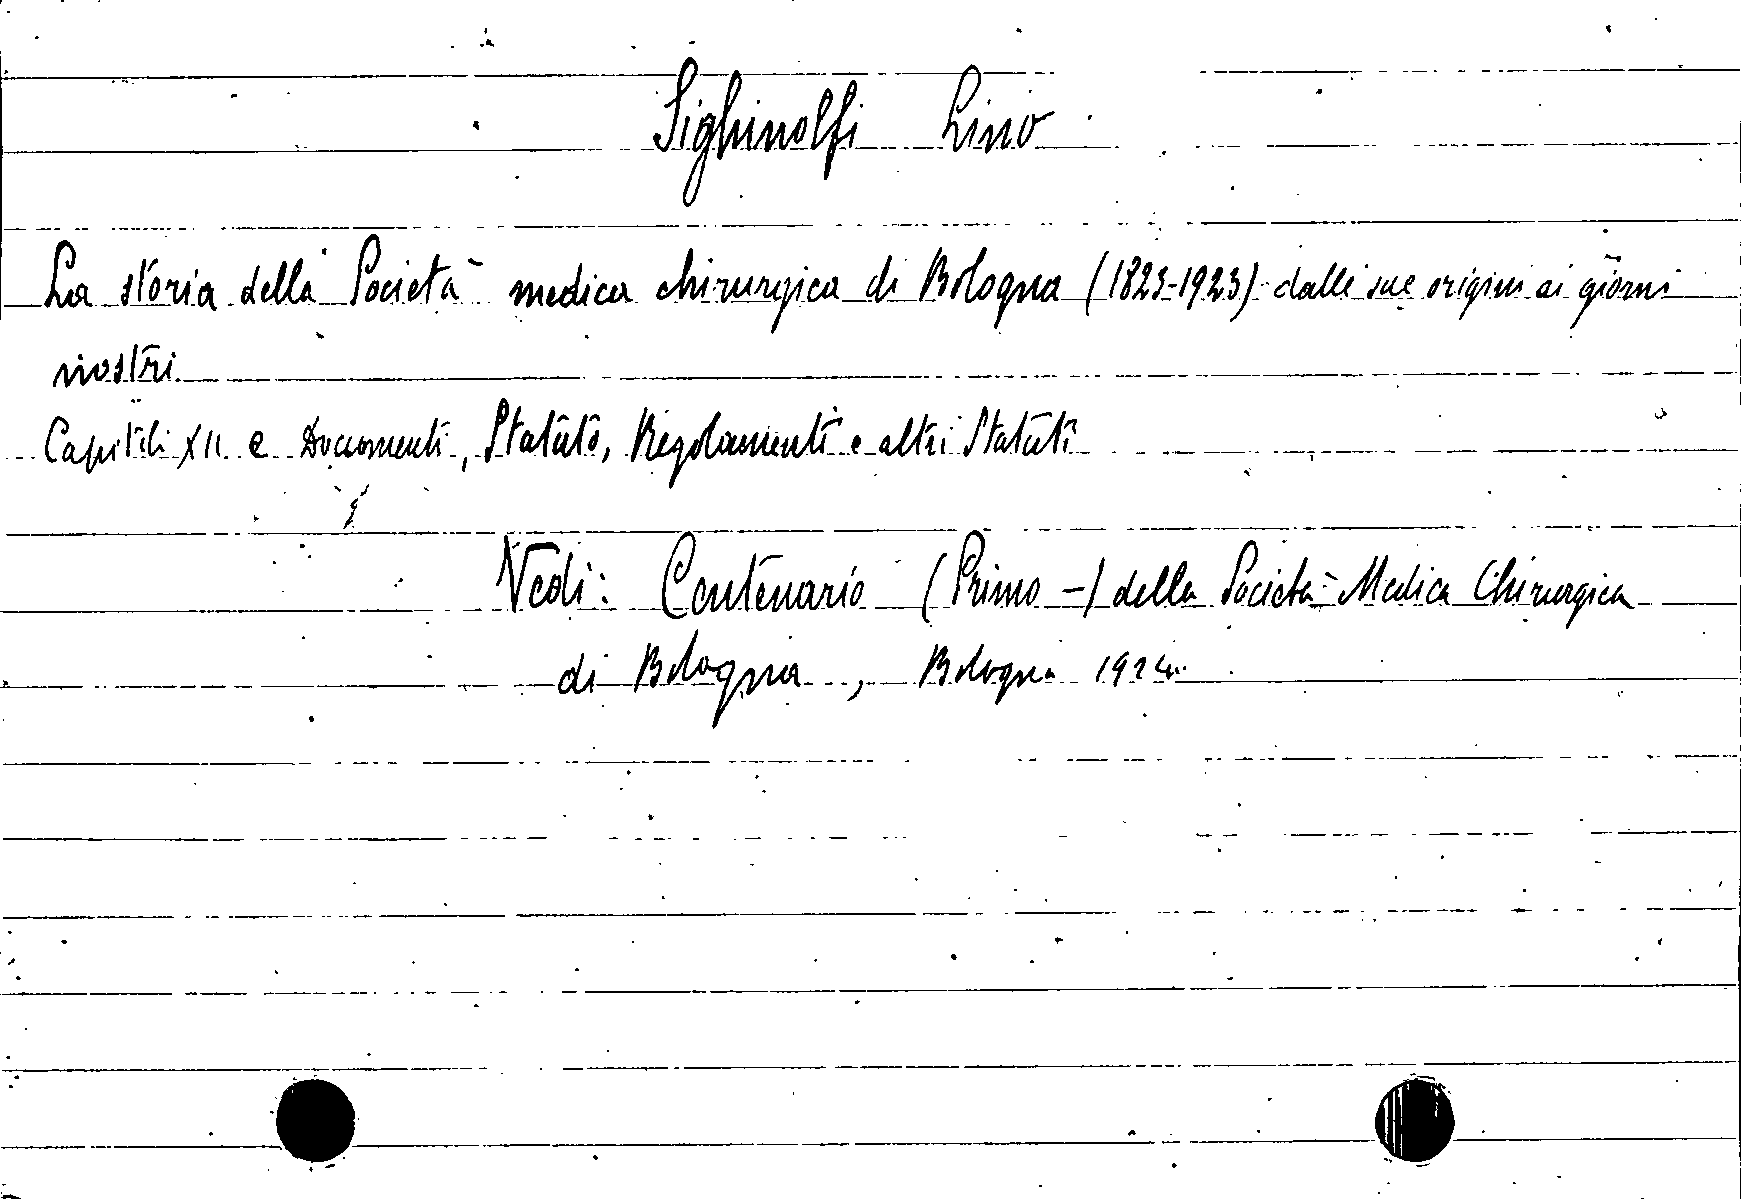 Sighinolfi Lino
La storia della Società medica chirurgica di Bologna (1823-1923) dalle sue origini ai giorni
nostri
Capitoli XII e Documenti, Statuto, Regolamenti e altri Statuti
Vedi: Centenario (Primo -) della Società Medica Chirurgica
di Bologna, Bologna 1924.